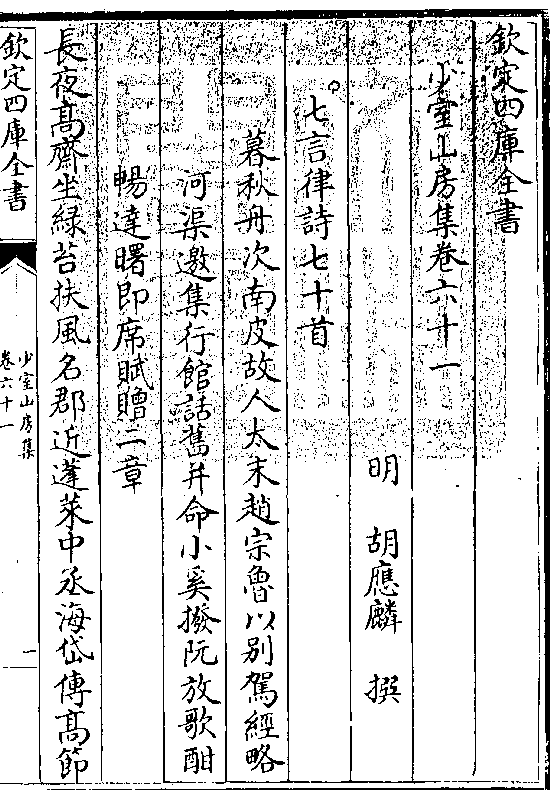 欽定四庫全書
少室山房集卷六十一
明　胡應麟　撰
七言律詩七十首
暮秋舟次南皮故人太末趙宗魯以别駕經略
河渠邀集行館話舊并命小奚撥阮放歌酣
暢達曙即席賦贈二章
長夜髙齋坐緑苔扶風名郡近蓬萊中丞海岱傳髙節
欽定四庫全書
少室山房集
卷六十一
一